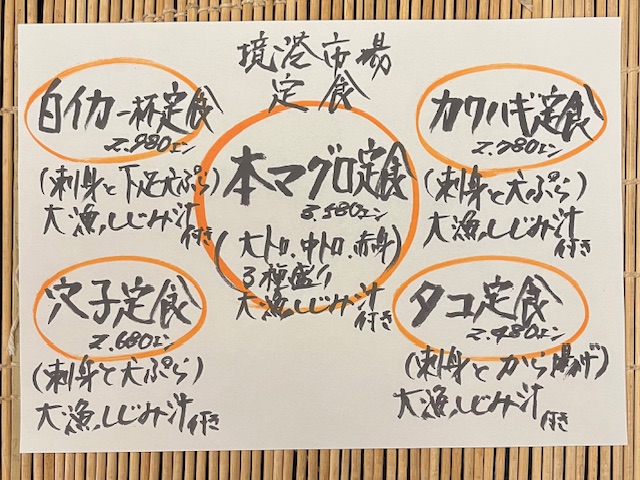 境港市場
定食
白イカ一杯定食
2.980エン
(刺身と下足天ぷら)
大漁しじみ汁付き
本マグロ定食
3.580エン
(大トロ、中トロ、赤身)
3種盛り
大漁しじみ汁付き
カワハギ定食
2.780エン
(刺身と天ぷら)
大漁しじみ汁付き
穴子定食
2.680エン
(刺身と天ぷら)
大漁しじみ汁付き
タコ定食
2.480エン
(刺身とから揚げ)
大漁しじみ汁付き